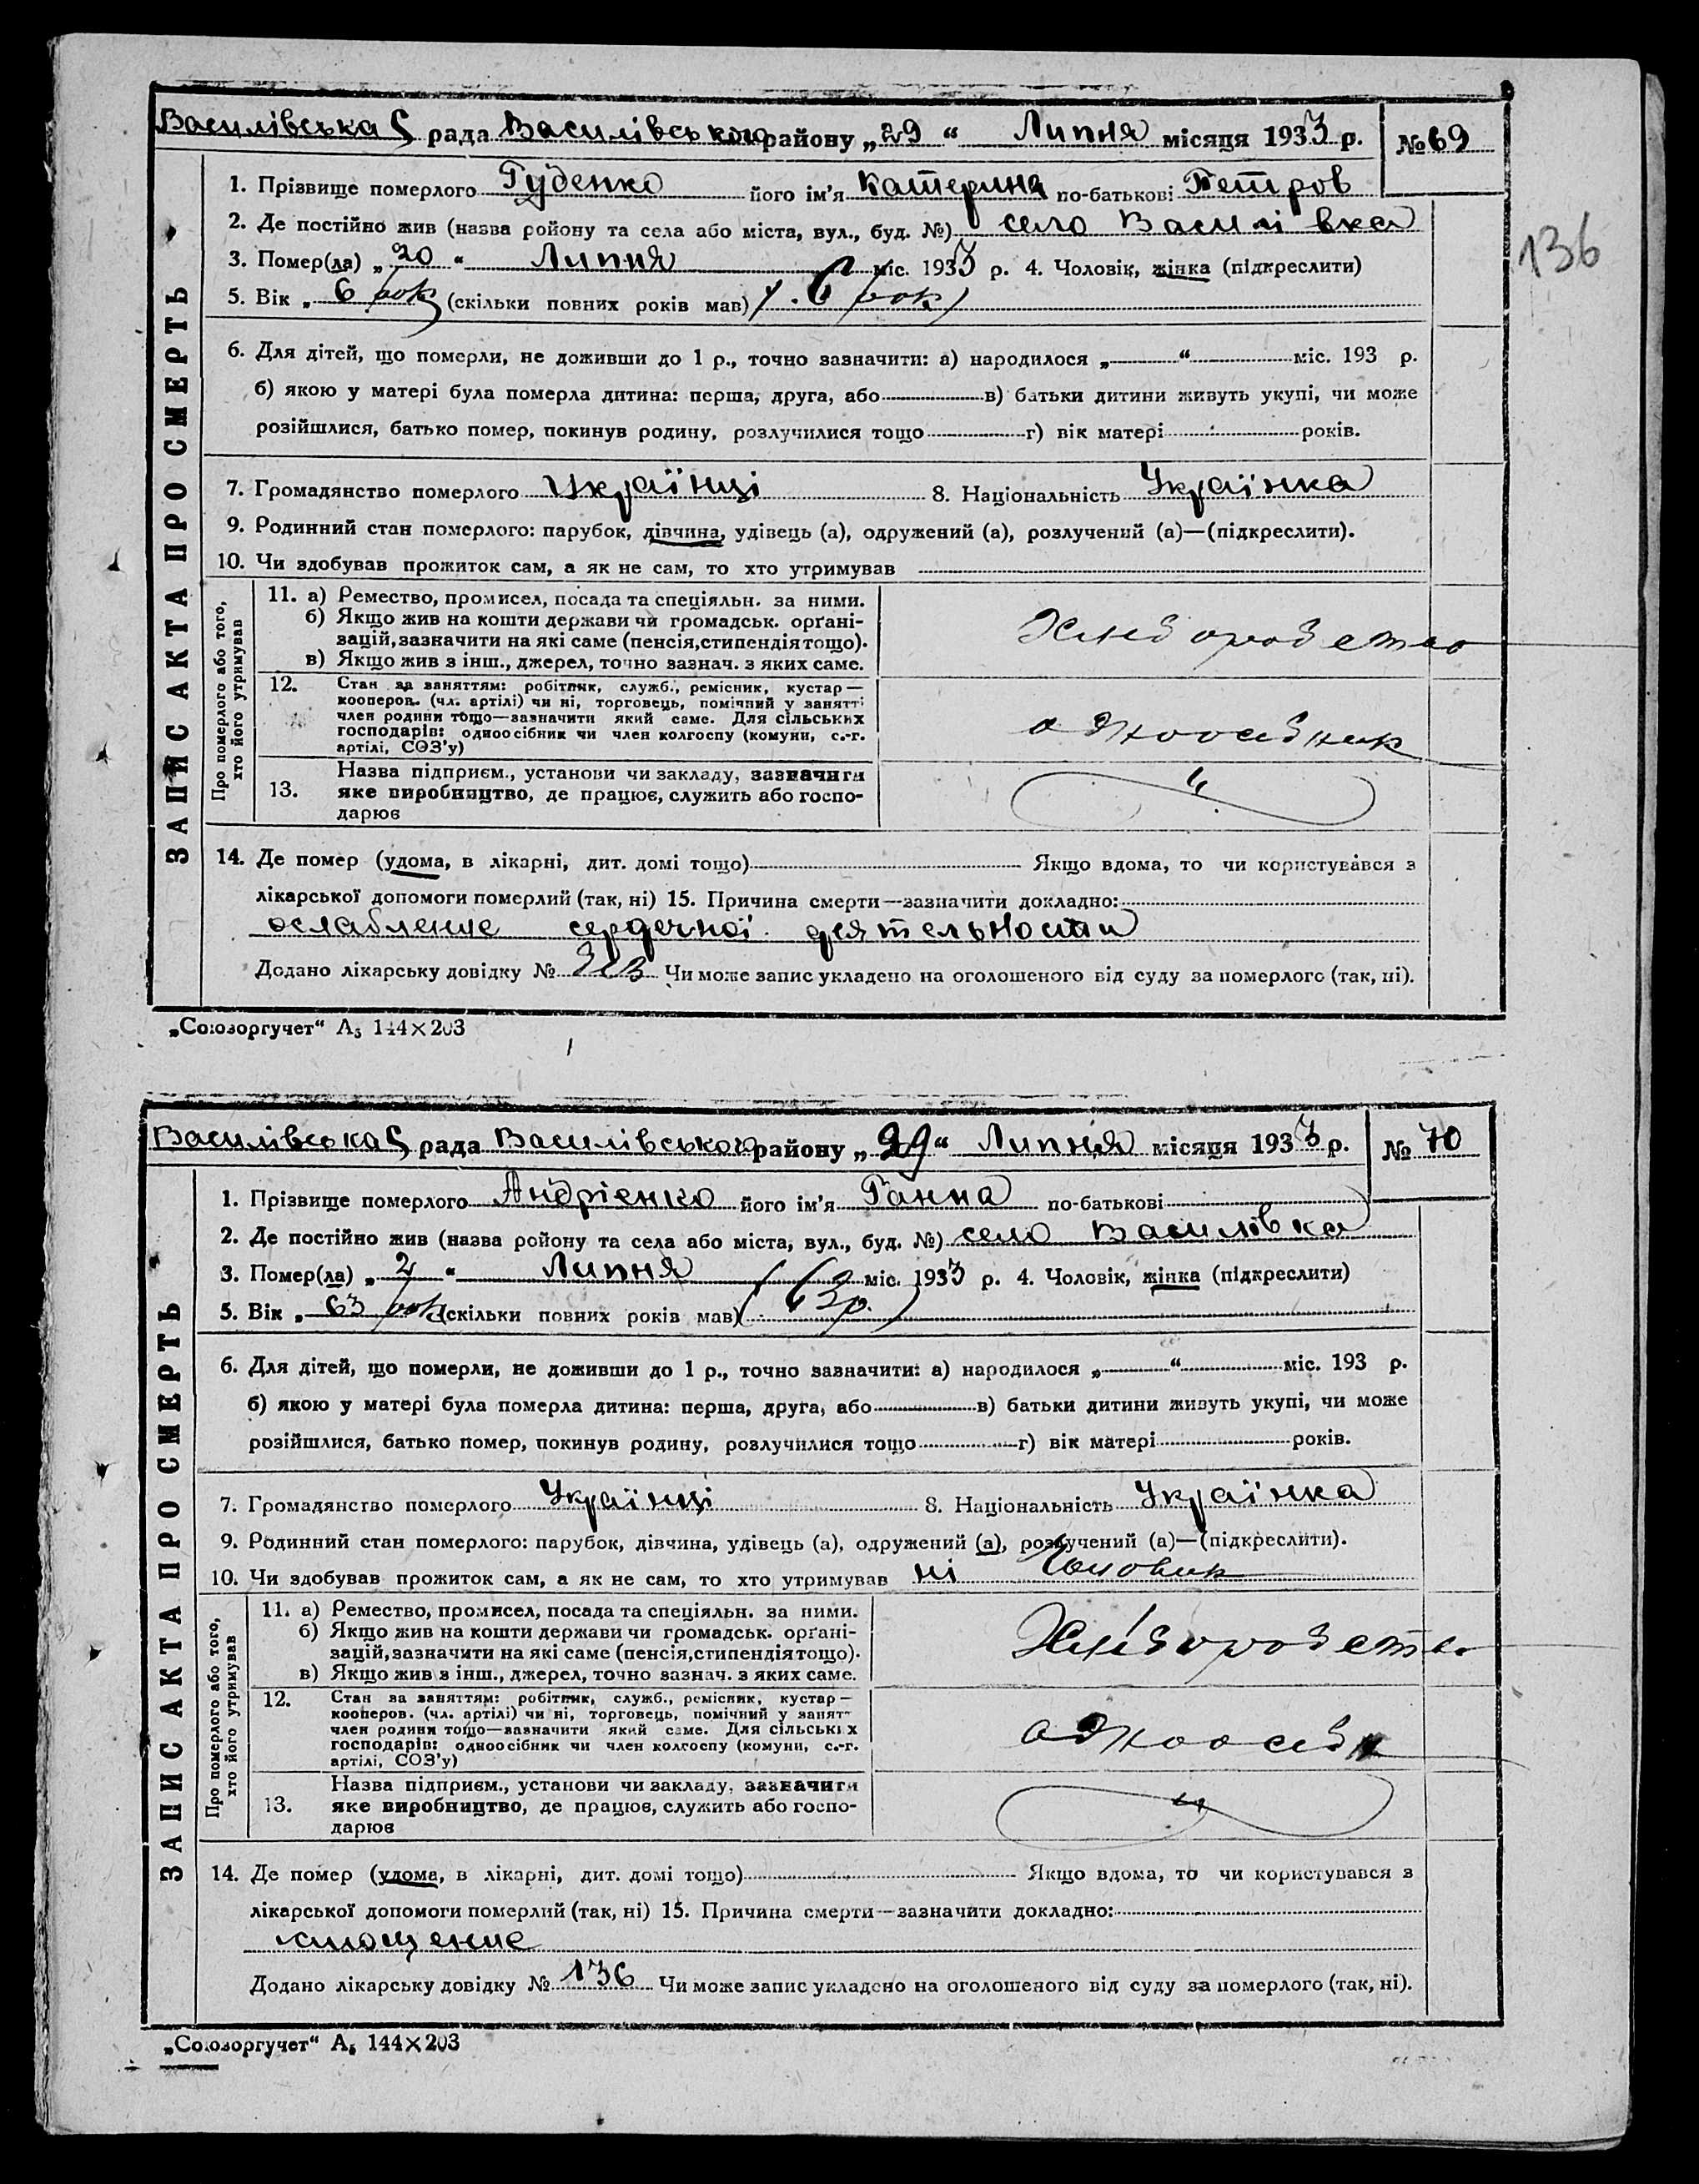 Василівська С рада Василівського району „29“ Липня місяця 1933 р. № 69
136
1. Прізвище померлого Гуденко його ім'я Катерина по-батькові Петров
2. Де постійно жив (назва ройону та села або міста, вул., буд. №) село Василівка
3. Помер(ла) „20“ Липня міс. 1933 р. 4. Чоловік, жінка (підкреслити)
5. Вік „ 6 рок (скільки повних років мав) (6 рок)
6. Для дітей, що померли, не доживши до 1 р., точно зазначити: а) народилося „ “ міс. 193 р.
б) якою у матері була померла дитина: перша, друга, або в) батьки дитини живуть укупі, чи може
розійшлися, батько помер, покинув родину, розлучилися тощо г) вік матері років.
7. Громадянство померлого Українці 8. Національність Українка
9. Родинний стан померлого: парубок, дівчина, удівець (а), одружений (а), розлучений (а)—(підкреслити).
10. Чи здобував прожиток сам, а як не сам, то хто утримував
ЗАПИС АКТА ПРО СМЕРТЬ
Про померлого або того,
хто його утримував
11. а) Ремество, промисел, посада та спеціяльн. за ними.
б) Якщо жив на кошти держави чи громадськ. орґані-
зацій, зазначити на які саме (пенсія, стипендія тощо).
в) Якщо жив з інш., джерел, точно зазнач. з яких саме.
Хліборобство
12. Стан за заняттям: робітник, служб., ремісник, кустар—
кооперов. (чл. артілі) чи ні, торговець, помічний у занятті
член родини тощо—зазначити який саме. Для сільських
господарів: одноосібник чи член колгоспу (комуни, с.-г.
артілі, СОЗ'у)
одноосібник
13. Назва підприєм., установи чи закладу, зазначити
яке виробництво, де працює, служить або госпо-
дарює
"
14. Де помер (удома, в лікарні, дит. домі тощо) Якщо вдома, то чи користувався з
лікарської допомоги померлий (так, ні) 15. Причина смерти—зазначити докладно:
ослабление сердечної деятельности
Додано лікарську довідку № Чи може запис укладено на оголошеного від суду за померлого (так, ні).
„Союзоргучет“ А₅ 144×203
Василівська С рада Василівського району „29“ Липня місяця 1933 р. № 70
1. Прізвище померлого Андрієнко його ім'я Ганна по-батькові
2. Де постійно жив (назва ройону та села або міста, вул., буд. №) село Василівка
3. Помер(ла) „2“ Липня міс. 1933 р. 4. Чоловік, жінка (підкреслити)
5. Вік „ 63 рок (скільки повних років мав) (63 р.)
6. Для дітей, що померли, не доживши до 1 р., точно зазначити: а) народилося „ “ міс. 193 р.
б) якою у матері була померла дитина: перша, друга, або в) батьки дитини живуть укупі, чи може
розійшлися, батько помер, покинув родину, розлучилися тощо г) вік матері років.
7. Громадянство померлого Українці 8. Національність Українка
9. Родинний стан померлого: парубок, дівчина, удівець (а), одружений (а), розлучений (а)—(підкреслити).
10. Чи здобував прожиток сам, а як не сам, то хто утримував ні Чоловик
ЗАПИС АКТА ПРО СМЕРТЬ
Про померлого або того,
хто його утримував
11. а) Ремество, промисел, посада та спеціяльн. за ними.
б) Якщо жив на кошти держави чи громадськ. орґані-
зацій, зазначити на які саме (пенсія, стипендія тощо).
в) Якщо жив з інш., джерел, точно зазнач. з яких саме.
Хліборобство
12. Стан за заняттям: робітник, служб., ремісник, кустар—
кооперов. (чл. артілі) чи ні, торговець, помічний у занят-
член родини тощо—зазначити який саме. Для сільських
господарів: одноосібник чи член колгоспу (комуни, с.-г.
артілі, СОЗ'у)
одноосібн
13. Назва підприєм., установи чи закладу, зазначити
яке виробництво, де працює, служить або госпо-
дарює
"
14. Де помер (удома, в лікарні, дит. домі тощо) Якщо вдома, то чи користувався з
лікарської допомоги померлий (так, ні) 15. Причина смерти—зазначити докладно:
истощение
Додано лікарську довідку № 136 Чи може запис укладено на оголошеного від суду за померлого (так, ні).
„Союзоргучет“ А₅ 144×203